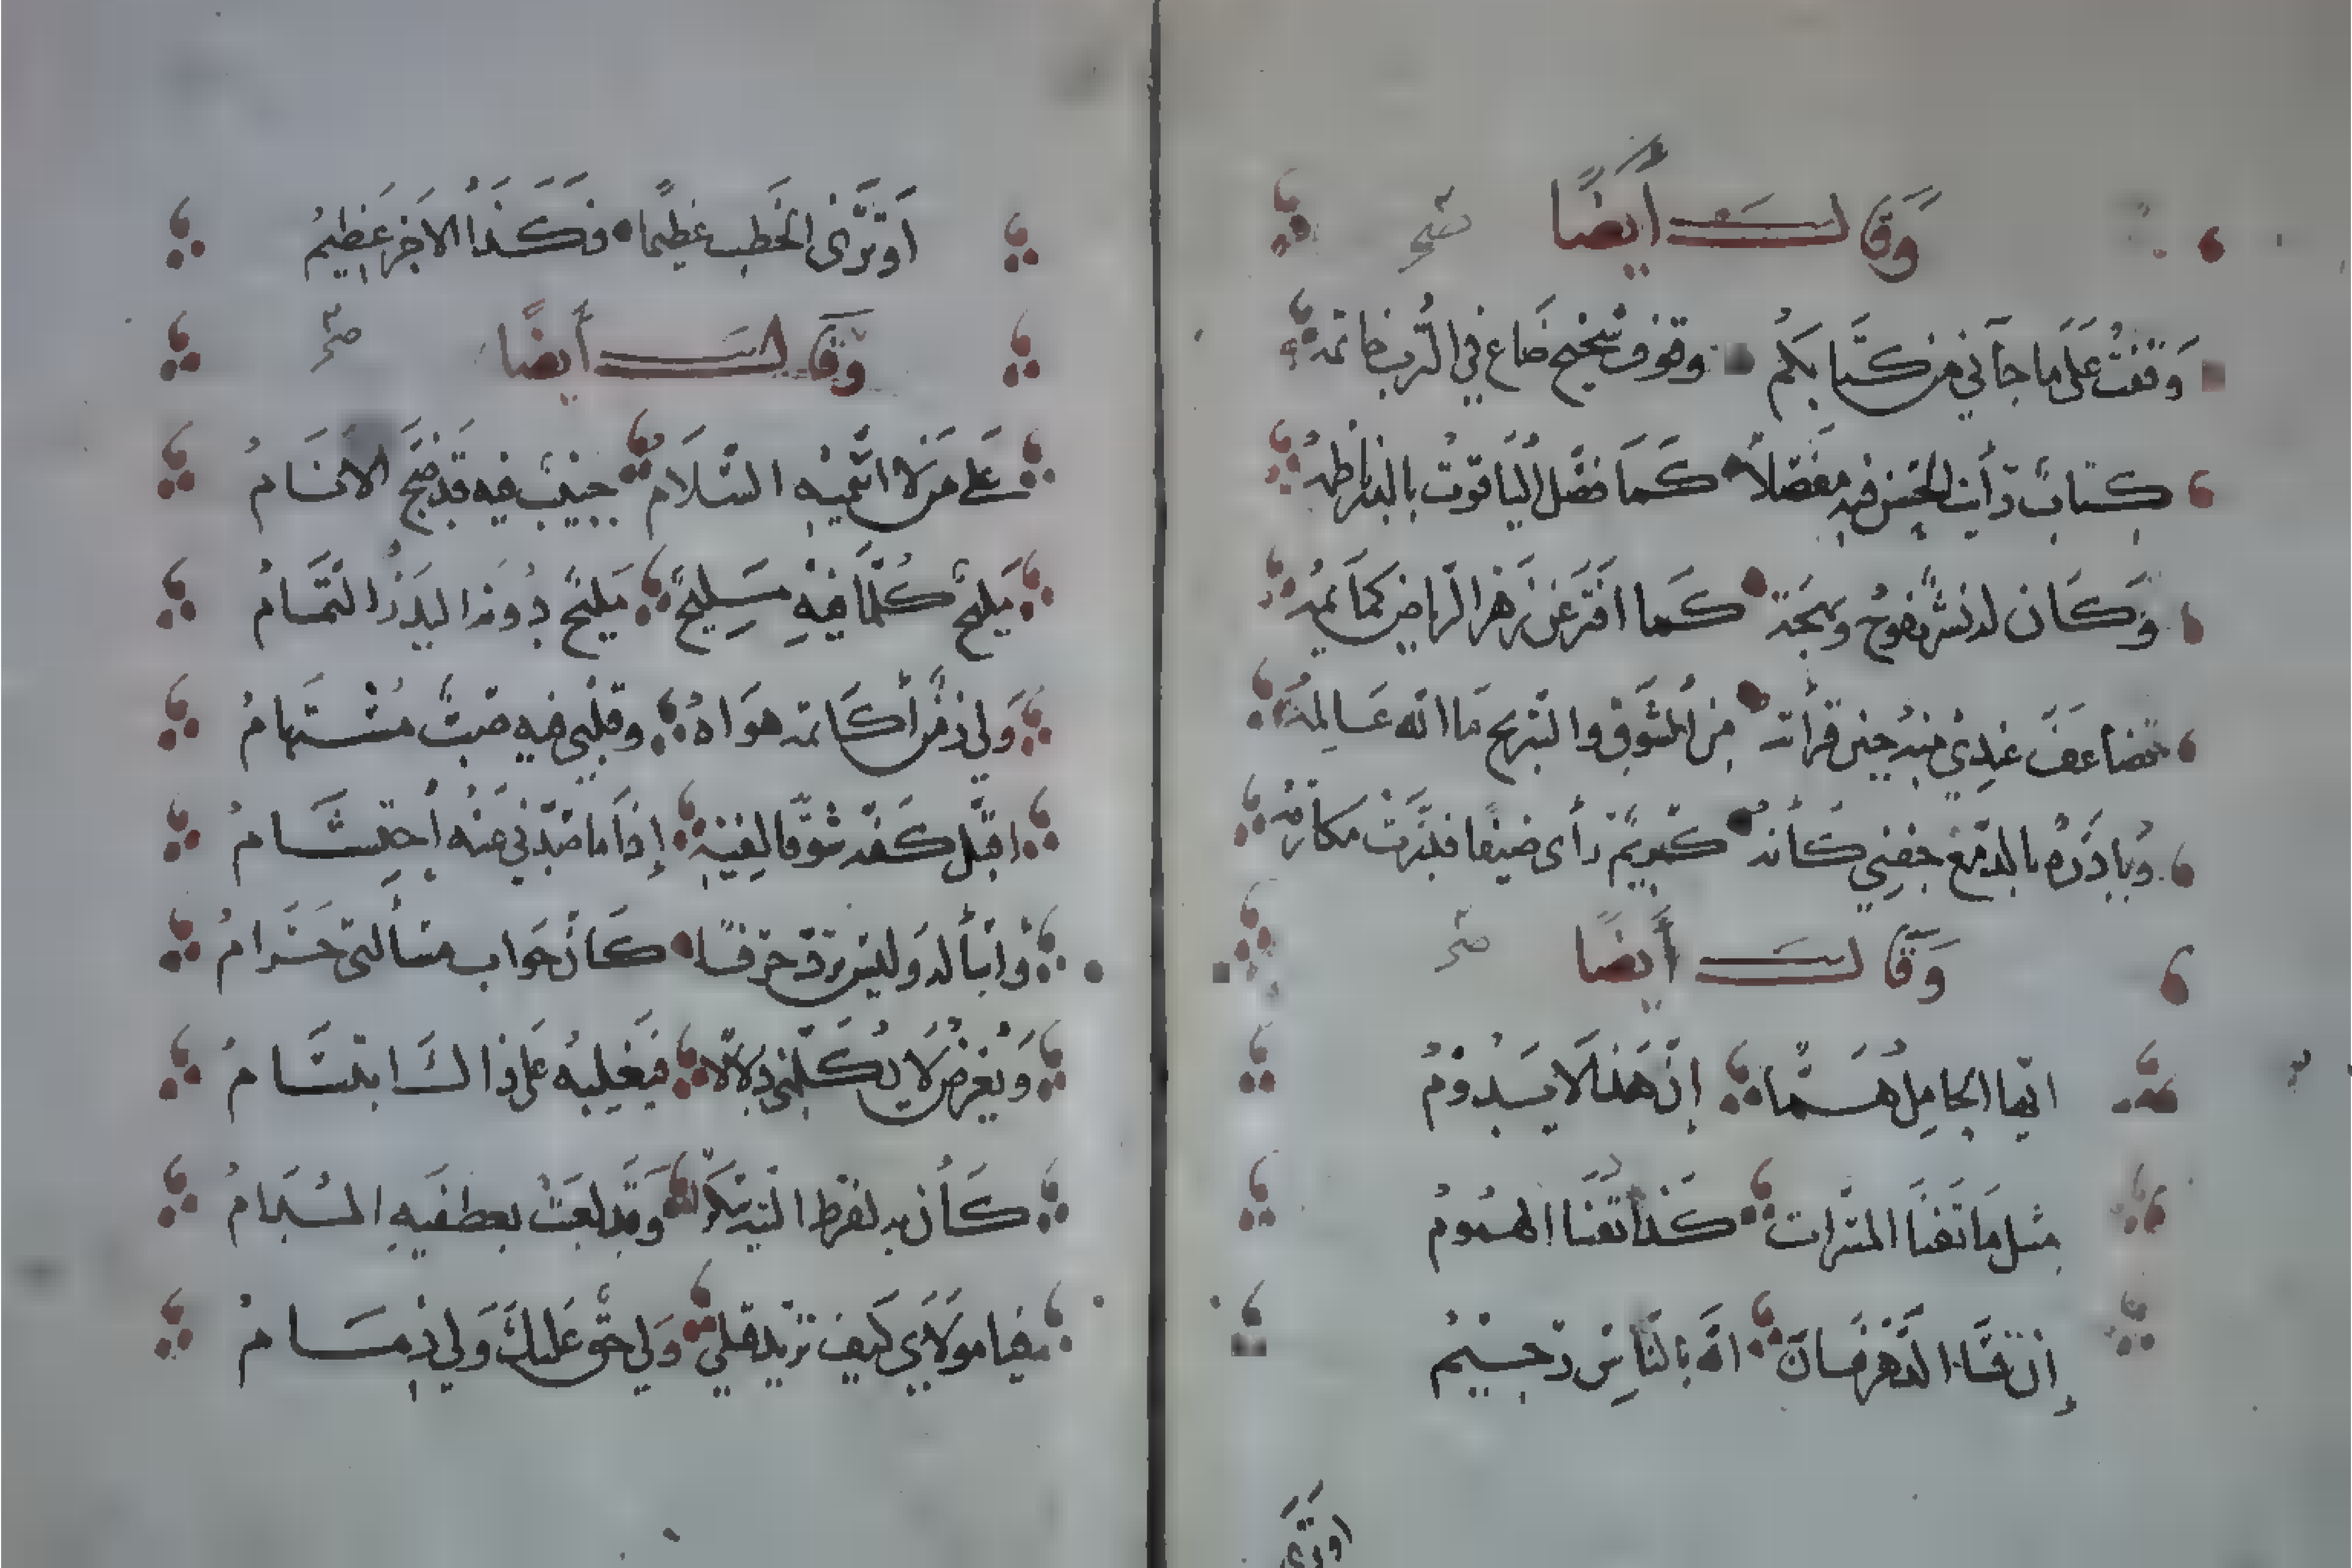 وَقَالَ أَيضًا صح
وَقَفْتُ عَلَى مَا جَآنِي مِن كِتَابِكُم وقوف شحيح ضَاعَ فِي التُّربِ خاتمه
كِتَابٌ رَأَيت الحُسنَ فيه مُفَصَّلاً كَمَا فَصَّلَ اليَاقوت بالدر ناظمه
وَكَان له نشر يفوحُ وبهجة كَما افترَّ عَن زهر الرياض كمائمه
تضاعف عندي منه حين قرأته مِن الشوق والتبريح مَا الله عَالِمُه
وَبادَرَه بالدمع جفني كَأنه كريم رأى ضيفا فدرت مكارمه
وَقَالَ أَيضًا صح
ايّها الحامل هَمًّا إِنّ هَذا لَا يَدُومُ
مثل مَا تَفنَا المسَرَّات كَذا تفنَا الهُمُومُ
إِن قسَا الدَّهر فإن الله بالنَّاسِ رَحِيمُ
اوترى
أَوتَرَى الخَطب عظيما فكَذَا الاجر عَظِيمُ
وَقَالَ أَيضًا صح
عَلى مَن لا اسَمِّيهِ السَّلَامُ حبيبٌ فيه قد ضجّ الانَامُ
مَليحٌ كُلّما فيهِ مَليحٌ مَليحٌ دُونه البدرُ التمَامُ
وَلي زمنٌ أكَاتمه هَوَاهُ وقلبي فيه صَبٌّ مُسْتَهامُ
اقبّل كفّه شوقا لفيهِ إذا ما صدّني عنه أحتشَامُ
وَأسأله وَليس يردّ حرفًا كأنّ جَواب مسألتي حَرامُ
وَيُعرض لَا يُكَلّمني دلالًا فيغلبهُ على ذاك ابتسَامُ
كَأن به لفرط التيه سكرا وَقد لعبَتْ بعطفَيهِ المُدَامُ
فيا مولَايَ كيف تريد قتلي وَلي حقّ عَليك وَلي ذِمَامُ